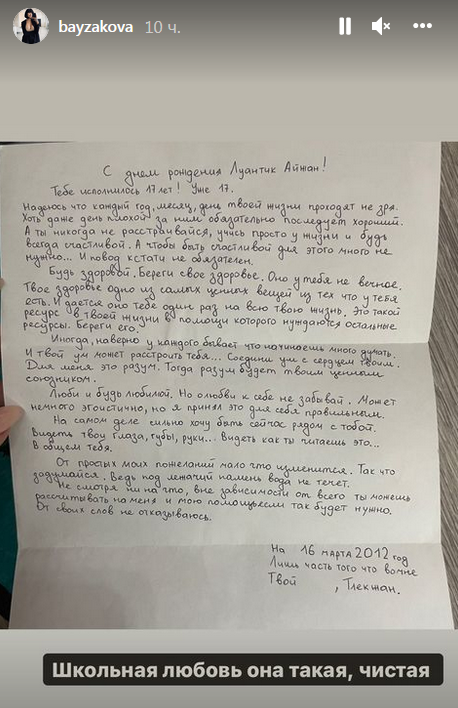 bayzakova 10 ч.
С днем рождения Луантик Айжан!
Тебе исполнилось 17 лет! Уже 17.
Надеюсь что каждый год, месяц, день твоей жизни проходят не зря.
Хоть даже день плохой за ним обязательно последует хороший.
А ты никогда не расстраивайся, учись просто у жизни и будь
всегда счастливой. А чтобы быть счастливой для этого много не
нужно... И повод кстати не обязателен.
Будь здоровой. Береги свое здоровье. Оно у тебя не вечное.
Твое здоровье одно из самых ценных вещей из тех что у тебя
есть. И дается оно тебе один раз на всю твою жизнь. Это такой
ресурс в твоей жизни в помощи которого нуждаются остальные
ресурсы. Береги его.
Иногда, наверно у каждого бывает что начинаешь много думать.
И твой ум может расстроить тебя... Соедини ум с сердцем твоим.
Для меня это разум. Тогда разум будет твоим ценным
союзником.
Люби и будь любимой. Но о любви к себе не забывай. Может
немного эгоистично, но я принял это для себя правильным.
На самом деле сильно хочу быть сейчас рядом с тобой.
Видеть твои глаза, губы, руки... Видеть как ты читаешь это...
В общем тебя.
От простых моих пожеланий мало что изменится. Так что
задумайся. Ведь под лежачий камень вода не течет.
Не смотря ни на что, вне зависимости от всего ты можешь
рассчитывать на меня и мою помощь если так будет нужно.
От своих слов не отказываюсь.
На 16 марта 2012 год
Лишь часть того что во мне
Твой , Тлекжан.
Школьная любовь она такая, чистая